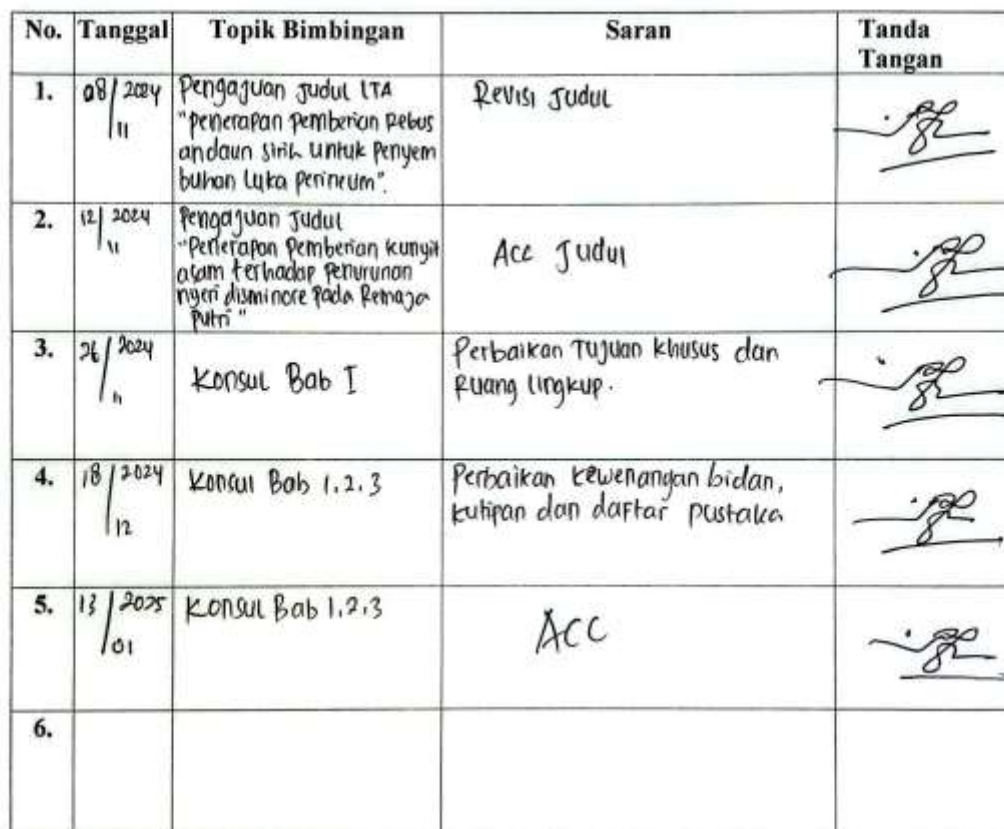 No. Tanggal Topik Bimbingan Saran Tanda
Tangan
1. 08/11 2024 Pengajuan Judul LTA Revisi Judul
"penerapan pemberian Rebus
andaun sirih untuk Penyem
buhan Luka Perineum".
2. 12/11 2024 Pengajuan Judul Acc Judul
"Penerapan Pemberian kunyit
asam terhadap Penurunan
nyeri disminore Pada Remaja
Putri"
3. 26/11 2024 Konsul Bab I Perbaikan Tujuan khusus dan
Ruang lingkup.
4. 18/12 2024 Konsul Bab 1.2.3 Perbaikan kewenangan bidan,
kutipan dan daftar pustaka
5. 13/01 2025 Konsul Bab 1.2.3 ACC
6.